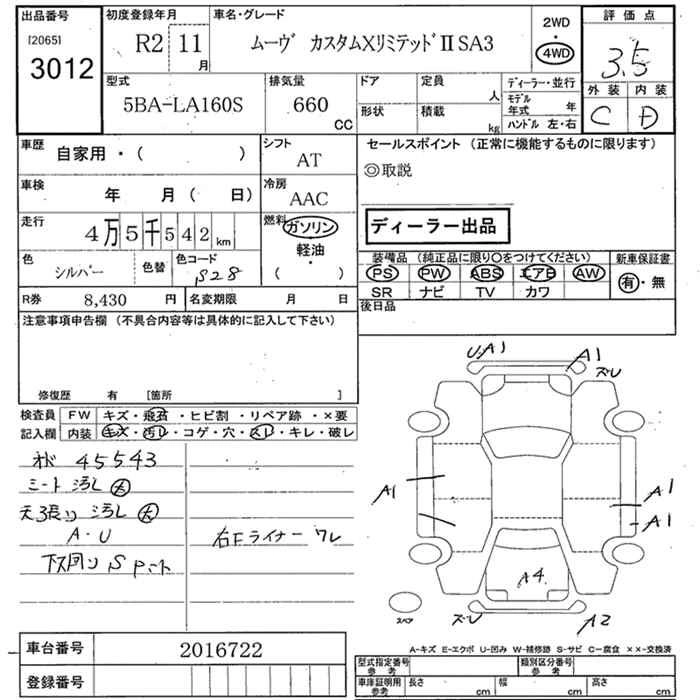 出品番号 [2065] 3012
初度登録年月 R2 11月
車名・グレード ムーヴ カスタムXリミテッドⅡSA3
2WD 4WD
評価点 3.5
外装 C 内装 D
型式 5BA-LA160S
排気量 660 CC
ドア 形状
定員 人 積載 kg
ディーラー・並行
モデル年式 年
ハンドル 左・右
車歴 自家用・( )
シフト AT
セールスポイント (正常に機能するものに限ります)
◎取説
車検 年 月( 日)
冷房 AAC
走行 4万5千542km
燃料 ガソリン 軽油・( )
ディーラー出品
色 シルバー 色替 色コード S28
装備品 (純正品に限り〇をつけてください) 新車保証書
PS PW ABS エアB AW 有・無
SR ナビ TV カワ
R券 8,430 円 名変期限 月 日
後日品
注意事項申告欄 (不具合内容等は具体的に記入して下さい)
修復歴 有 [箇所 ]
検査員記入欄 FW キズ・飛石・ヒビ割・リペア跡・×要
内装 キズ・汚レ・コゲ・穴・スレ・キレ・破レ
オド 45543
シート汚レ 大
天張り汚レ 大
A・U
下回りS
右Fライナーワレ
U・A1 A1 ズレ
A1 A1 A1
A4
ズレ A2
スペア
A-キズ E-エクボ U-凹み W-補修跡 S-サビ C-腐食 ××-交換済
車台番号 2016722
登録番号
型式指定番号 参考 類別区分番号 参考
車庫証明用 参考 長さ cm 幅 cm 高さ cm